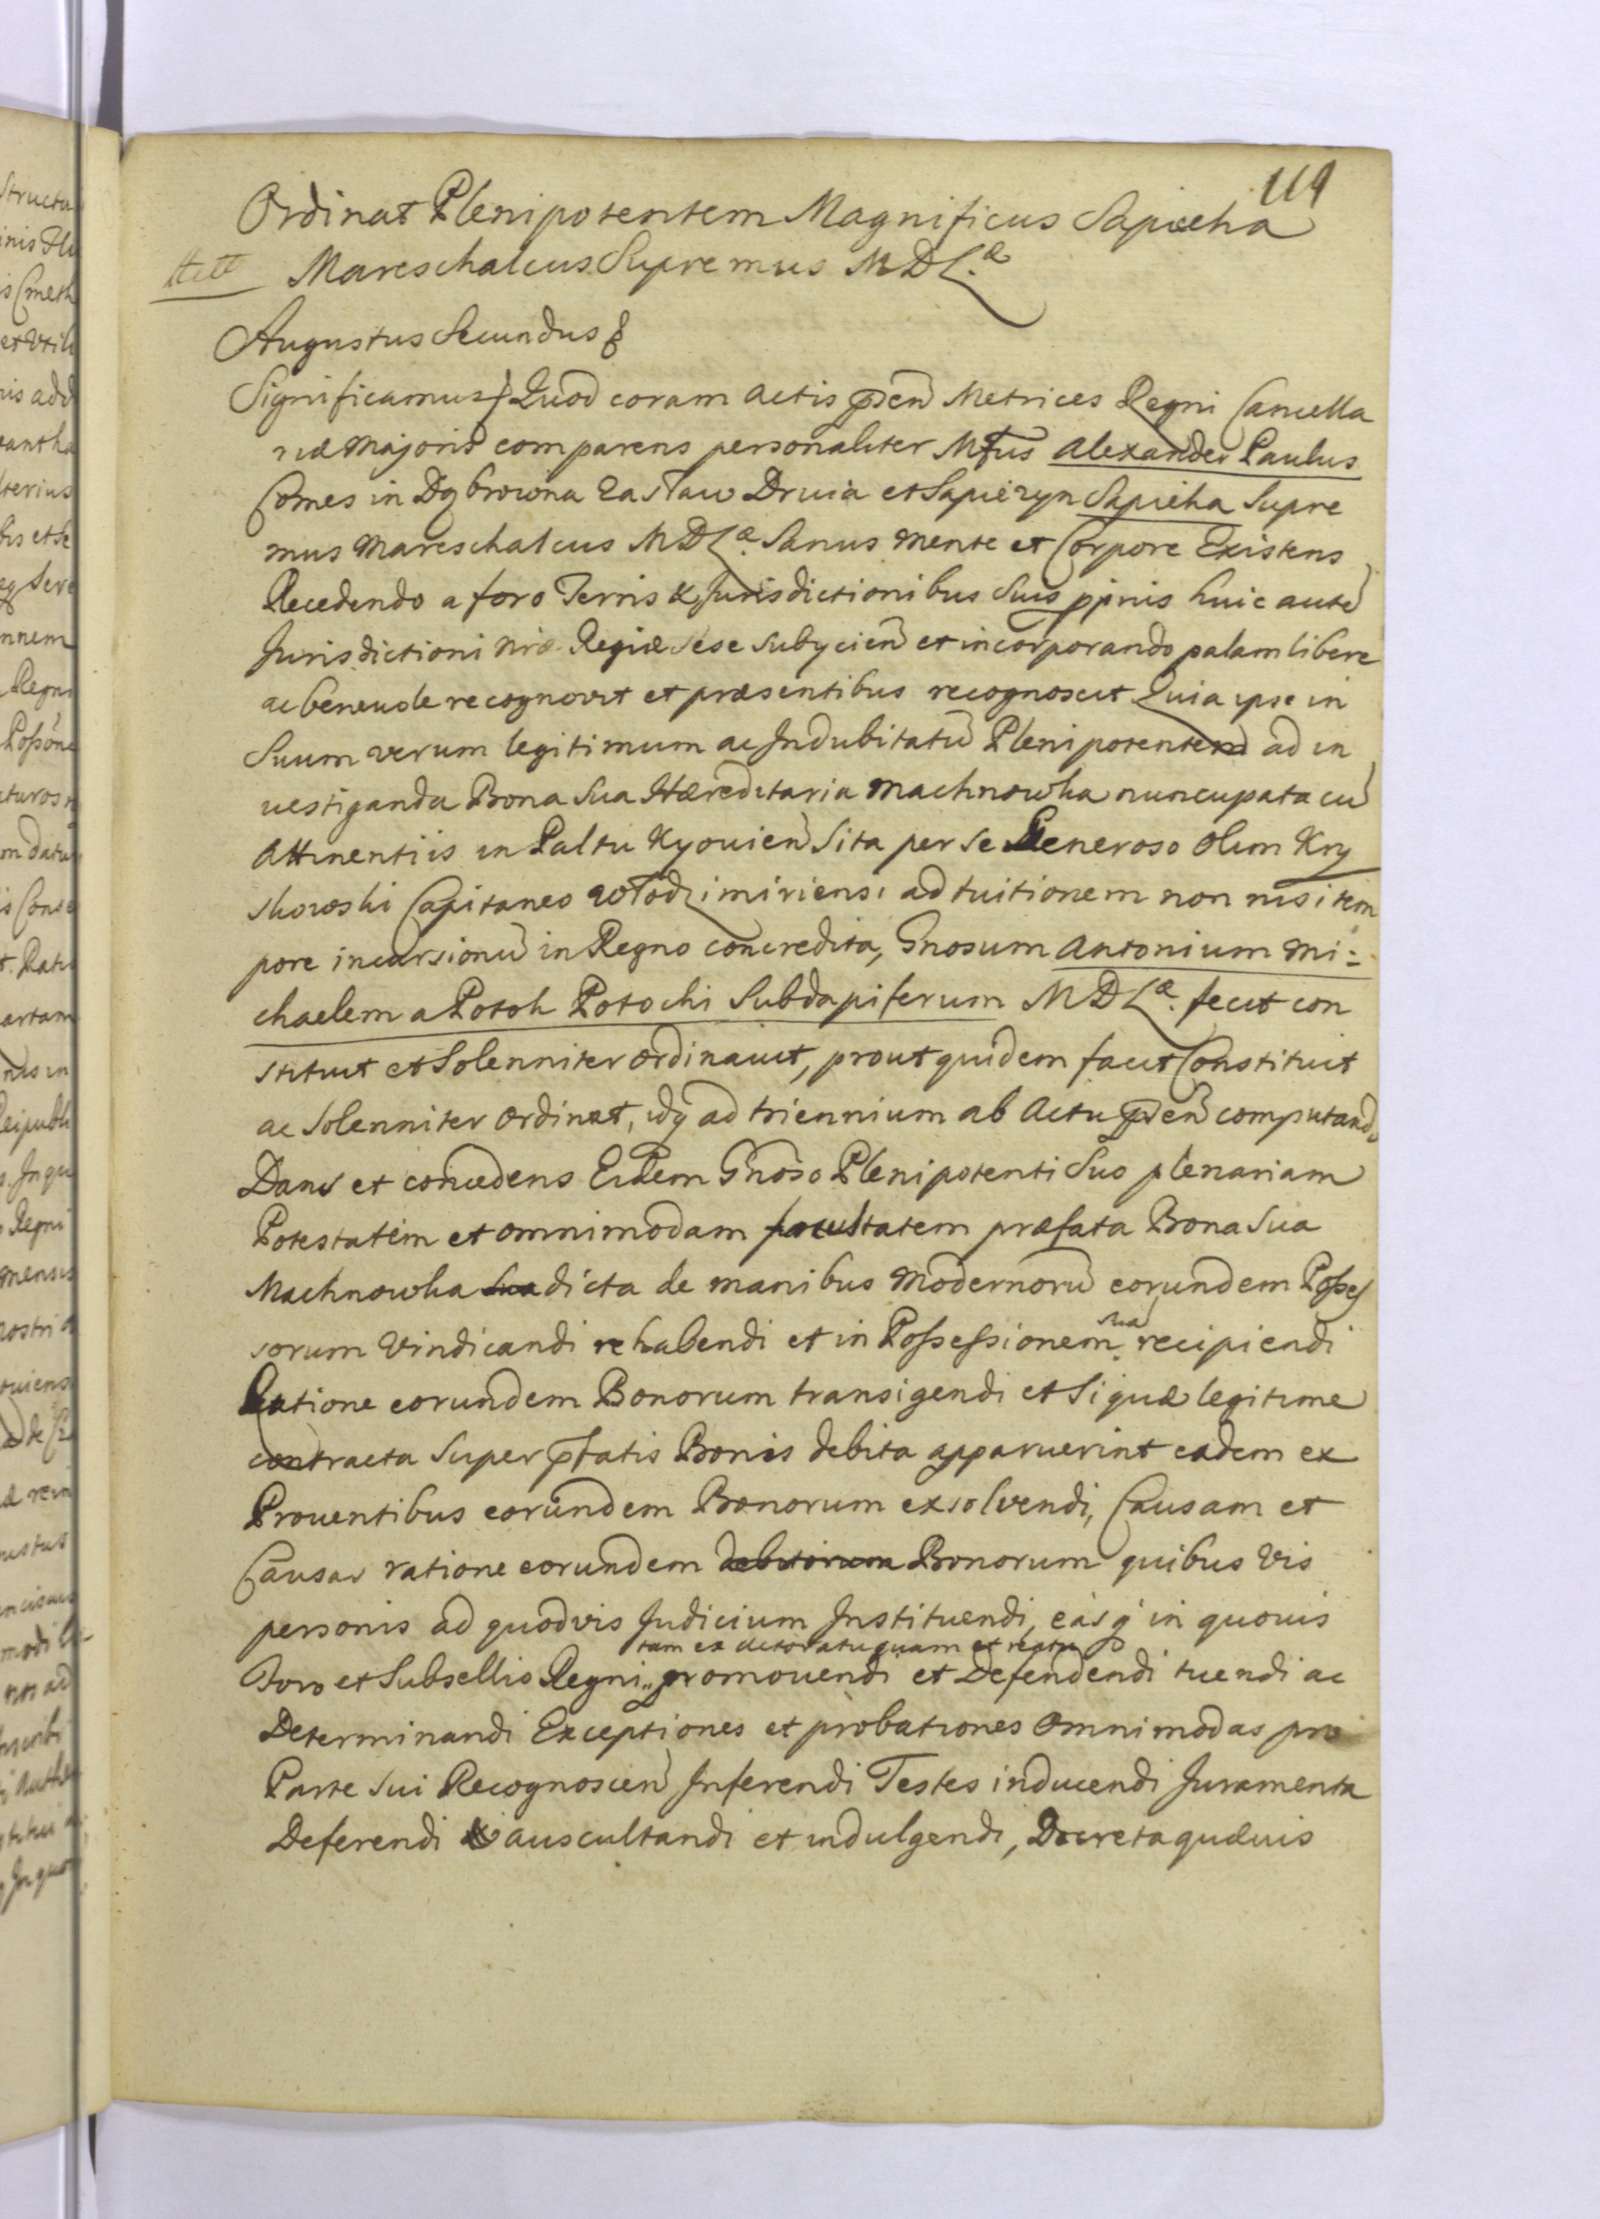 119
Ordinat Plenipotentem Magnificus Sapieha
Mareschalcus Supremus M D L.æ
Augustus Secundus &
Significamus & Quod coram actis p̄sen̄ Metrices Regni Cancella
riæ Majoris comparens personaliter Mfūs Alexander Paulus
Comes in Dąbrowna Zasław Druia et Sapiezyn Sapieha Supre
mus Mareschalcus M D L.æ Sanus mente et Corpore Existens
Recedendo a foro Terris & Jurisdictionibus Suis pprijs huic autē
Jurisdictioni nræ Regiæ sese subycien̄ et incorporando palam libere
ac beneuole recognovit et præsentibus recognoscit Quia ipse in
Suum verum legitimum ac Indubitatū Plenipotentem ad in
uestiganda Bona Sua Hæreditaria Machnowka nuncupata cū
Attinentiis in Paltu Kyouien̄ Sita per se Generoso Olim Kry
skowski Capitaneo Włodzimiriensi ad tuitionem non nisi tem
pore incursionū in Regno concredita, Gnosum Antonium Mi:
chaelem a Potok Potocki Subdapiferum M D L.æ fecit con
stituit et Solenniter ordinauit, prout quidem facit Constituit
ac Solenniter Ordinat, idq̨ ad triennium ab Actu p̄sen̄ computando
Dans et concedens Eidem Gnōso Plenipotenti Suo plenariam
Potestatem et omnimodam facultatem præfata Bona Sua
Machnowka dicta de manibus Modernorū eorundem Posses
sorum Vindicandi rehabendi et in Possessionem suā recipiendi
Ratione eorundem Bonorum transigendi et Si quæ legitime
contracta Super p̄fatis Bonis debita apparuerint eadem ex
Prouentibus eorundem Bonorum exsolvendi, Causam et
Causas ratione eorundem debitorum Bonorum quibus Vis
personis ad quodvis Judicium Instituendi, easq̨ in quouis
tam ex actoratu quam et reatu
Foro et Subsellio Regni promouendi et Defendendi tuendi ac
Determinandi Exceptiones et probationes Omnimodas pro
Parte Sui Recognoscen̄ Inferendi Testes inducendi Juramenta
Deferendi & auscultandi et indulgendi, Decreta quæuis